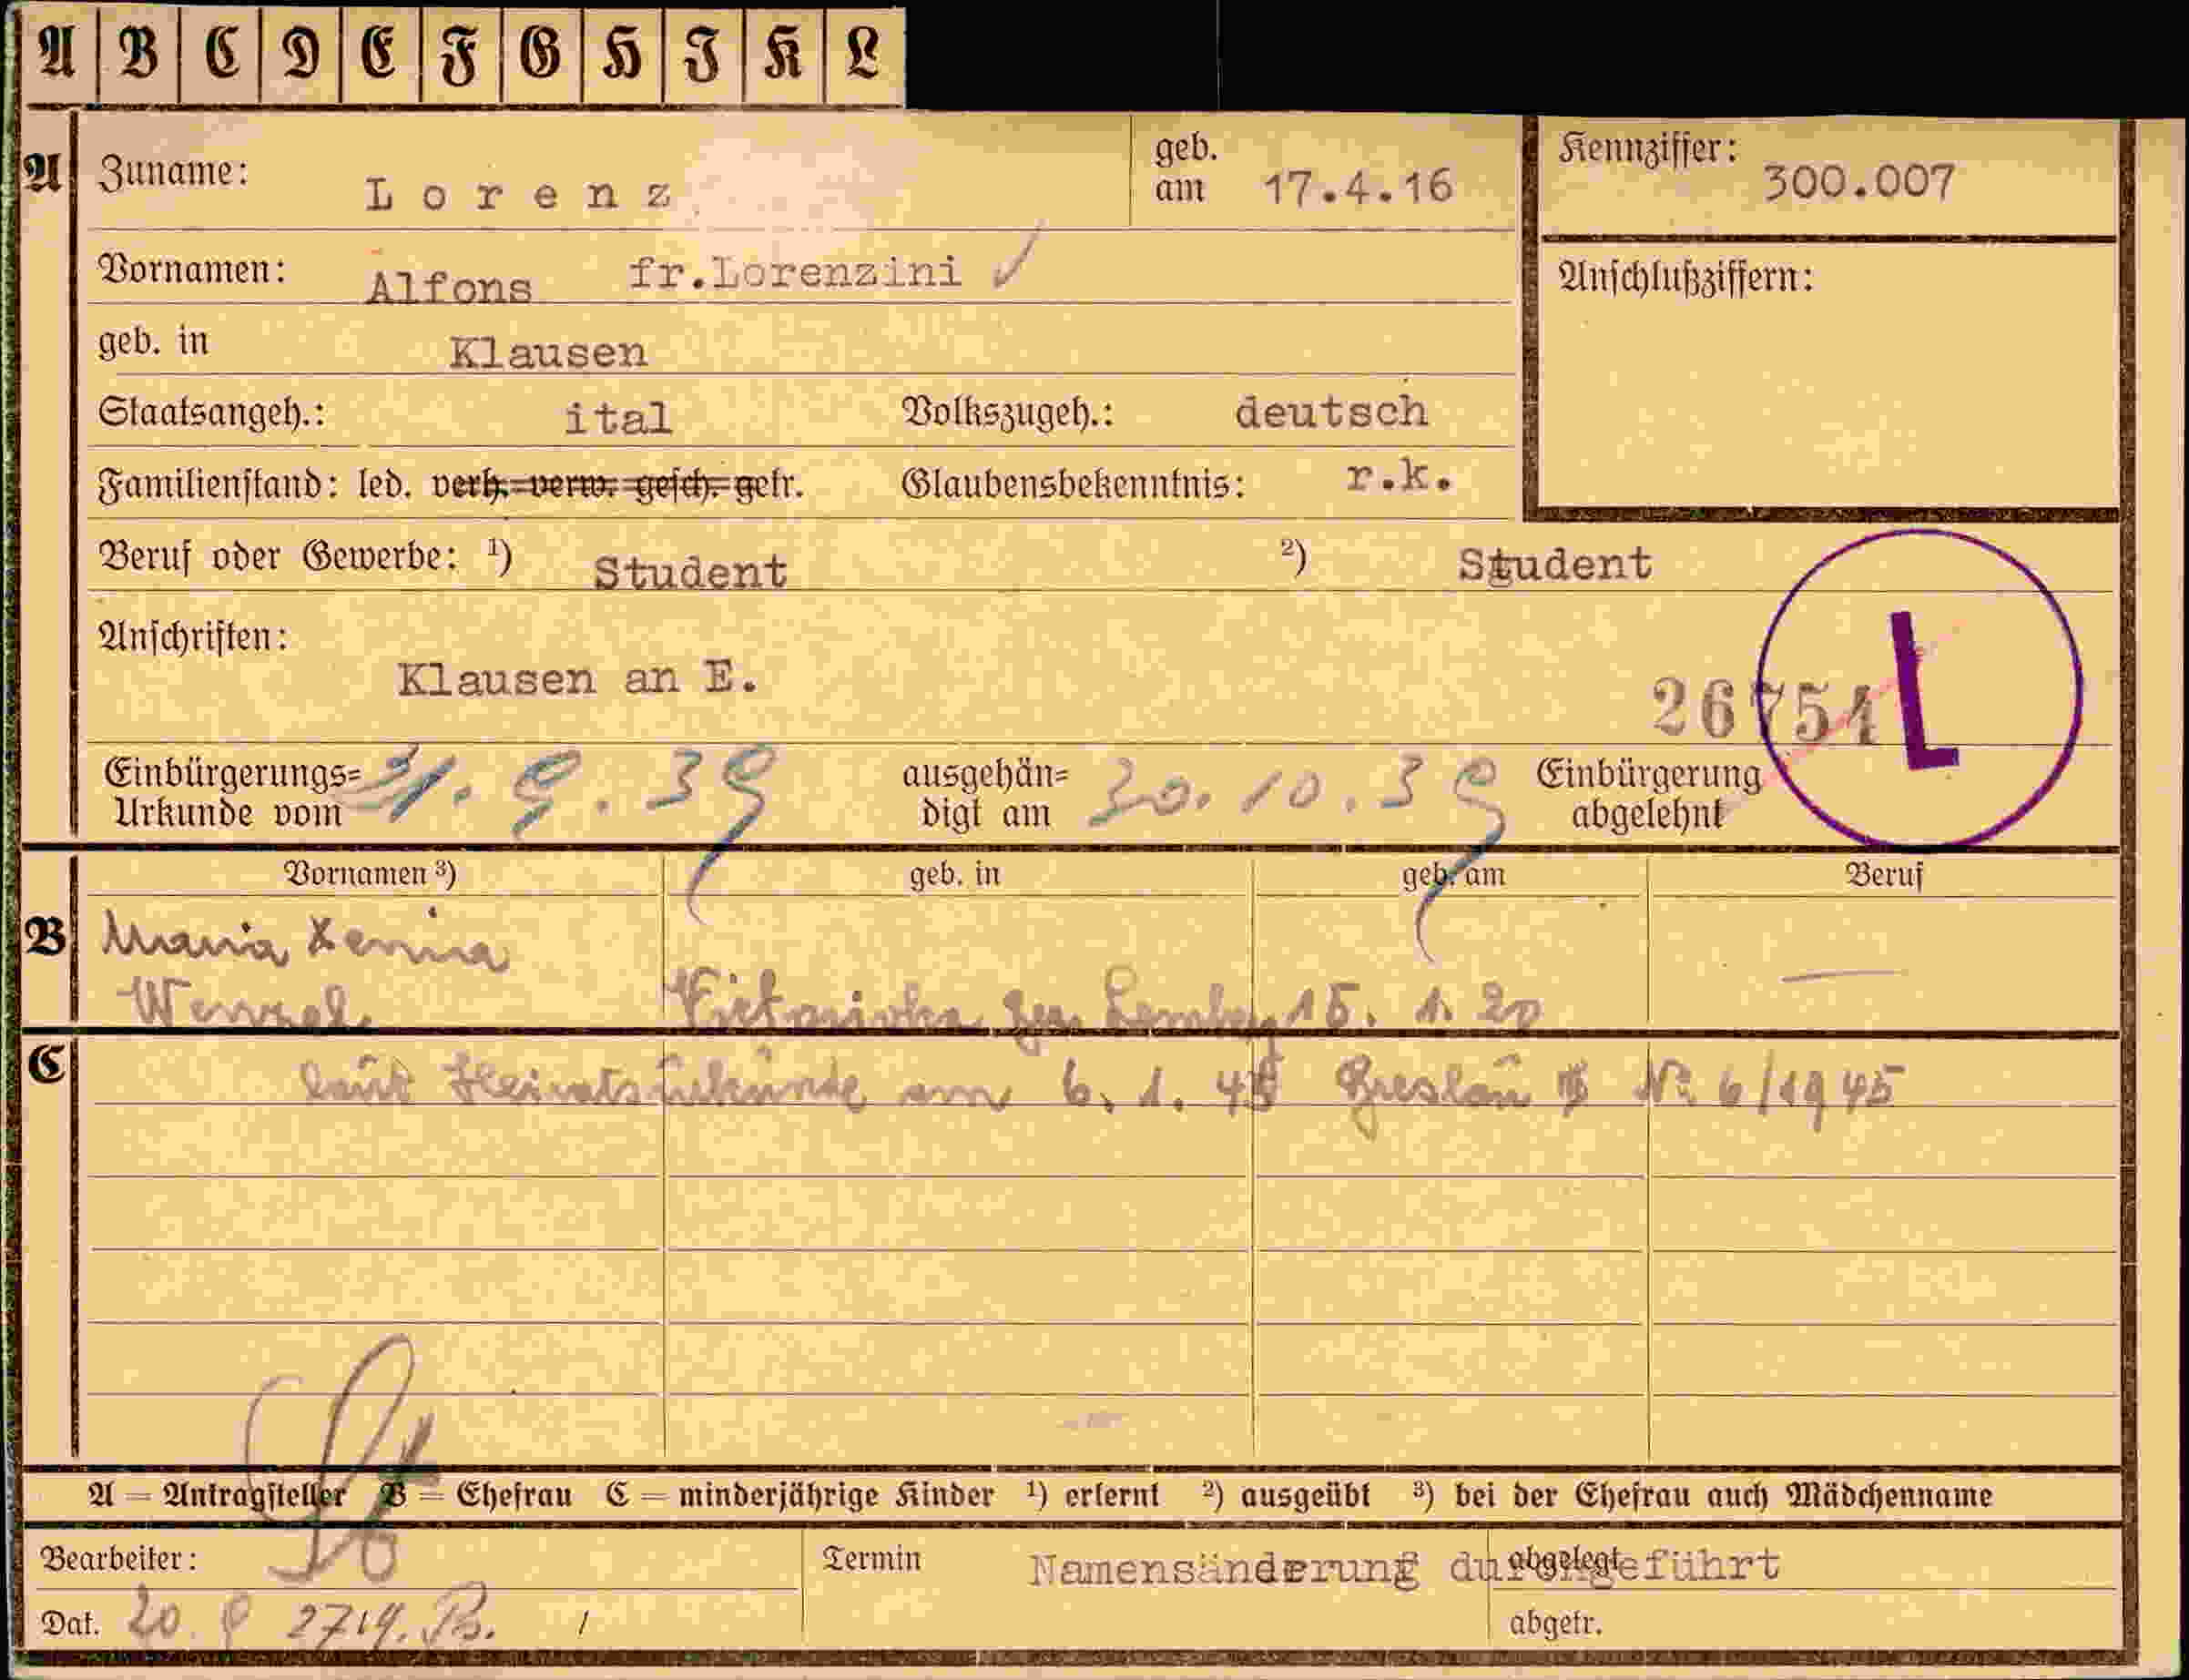 A B C D E F G H I K L
A Zuname: Lorenz geb. am 17.4.16 Kennziffer: 300.007
Vornamen: Alfons fr.Lorenzini Anschlußziffern:
geb. in Klausen
Staatsangeh.: ital Volkszugeh.: deutsch
Familienstand: led. verh. verw. gesch. getr. Glaubensbekenntnis: r.k.
Beruf oder Gewerbe: ¹) Student ²) Student
Anschriften:
Klausen an E.
26754 L
Einbürgerungs= Urkunde vom 9.39 ausgehän= digt am 30.10.39 Einbürgerung abgelehnt
Vornamen ³) geb. in geb. am Beruf
B Maria Xenia
Wenzel 15. 1. 20
C laut Heiratsurkunde am 6. 1. 45 Breslau Nr. 6/1945
A = Antragsteller B = Ehefrau C = minderjährige Kinder ¹) erlernt ²) ausgeübt ³) bei der Ehefrau auch Mädchenname
Bearbeiter: Termin Namensänderung durchgeführt abgelegt
Dat. 20. abgetr.